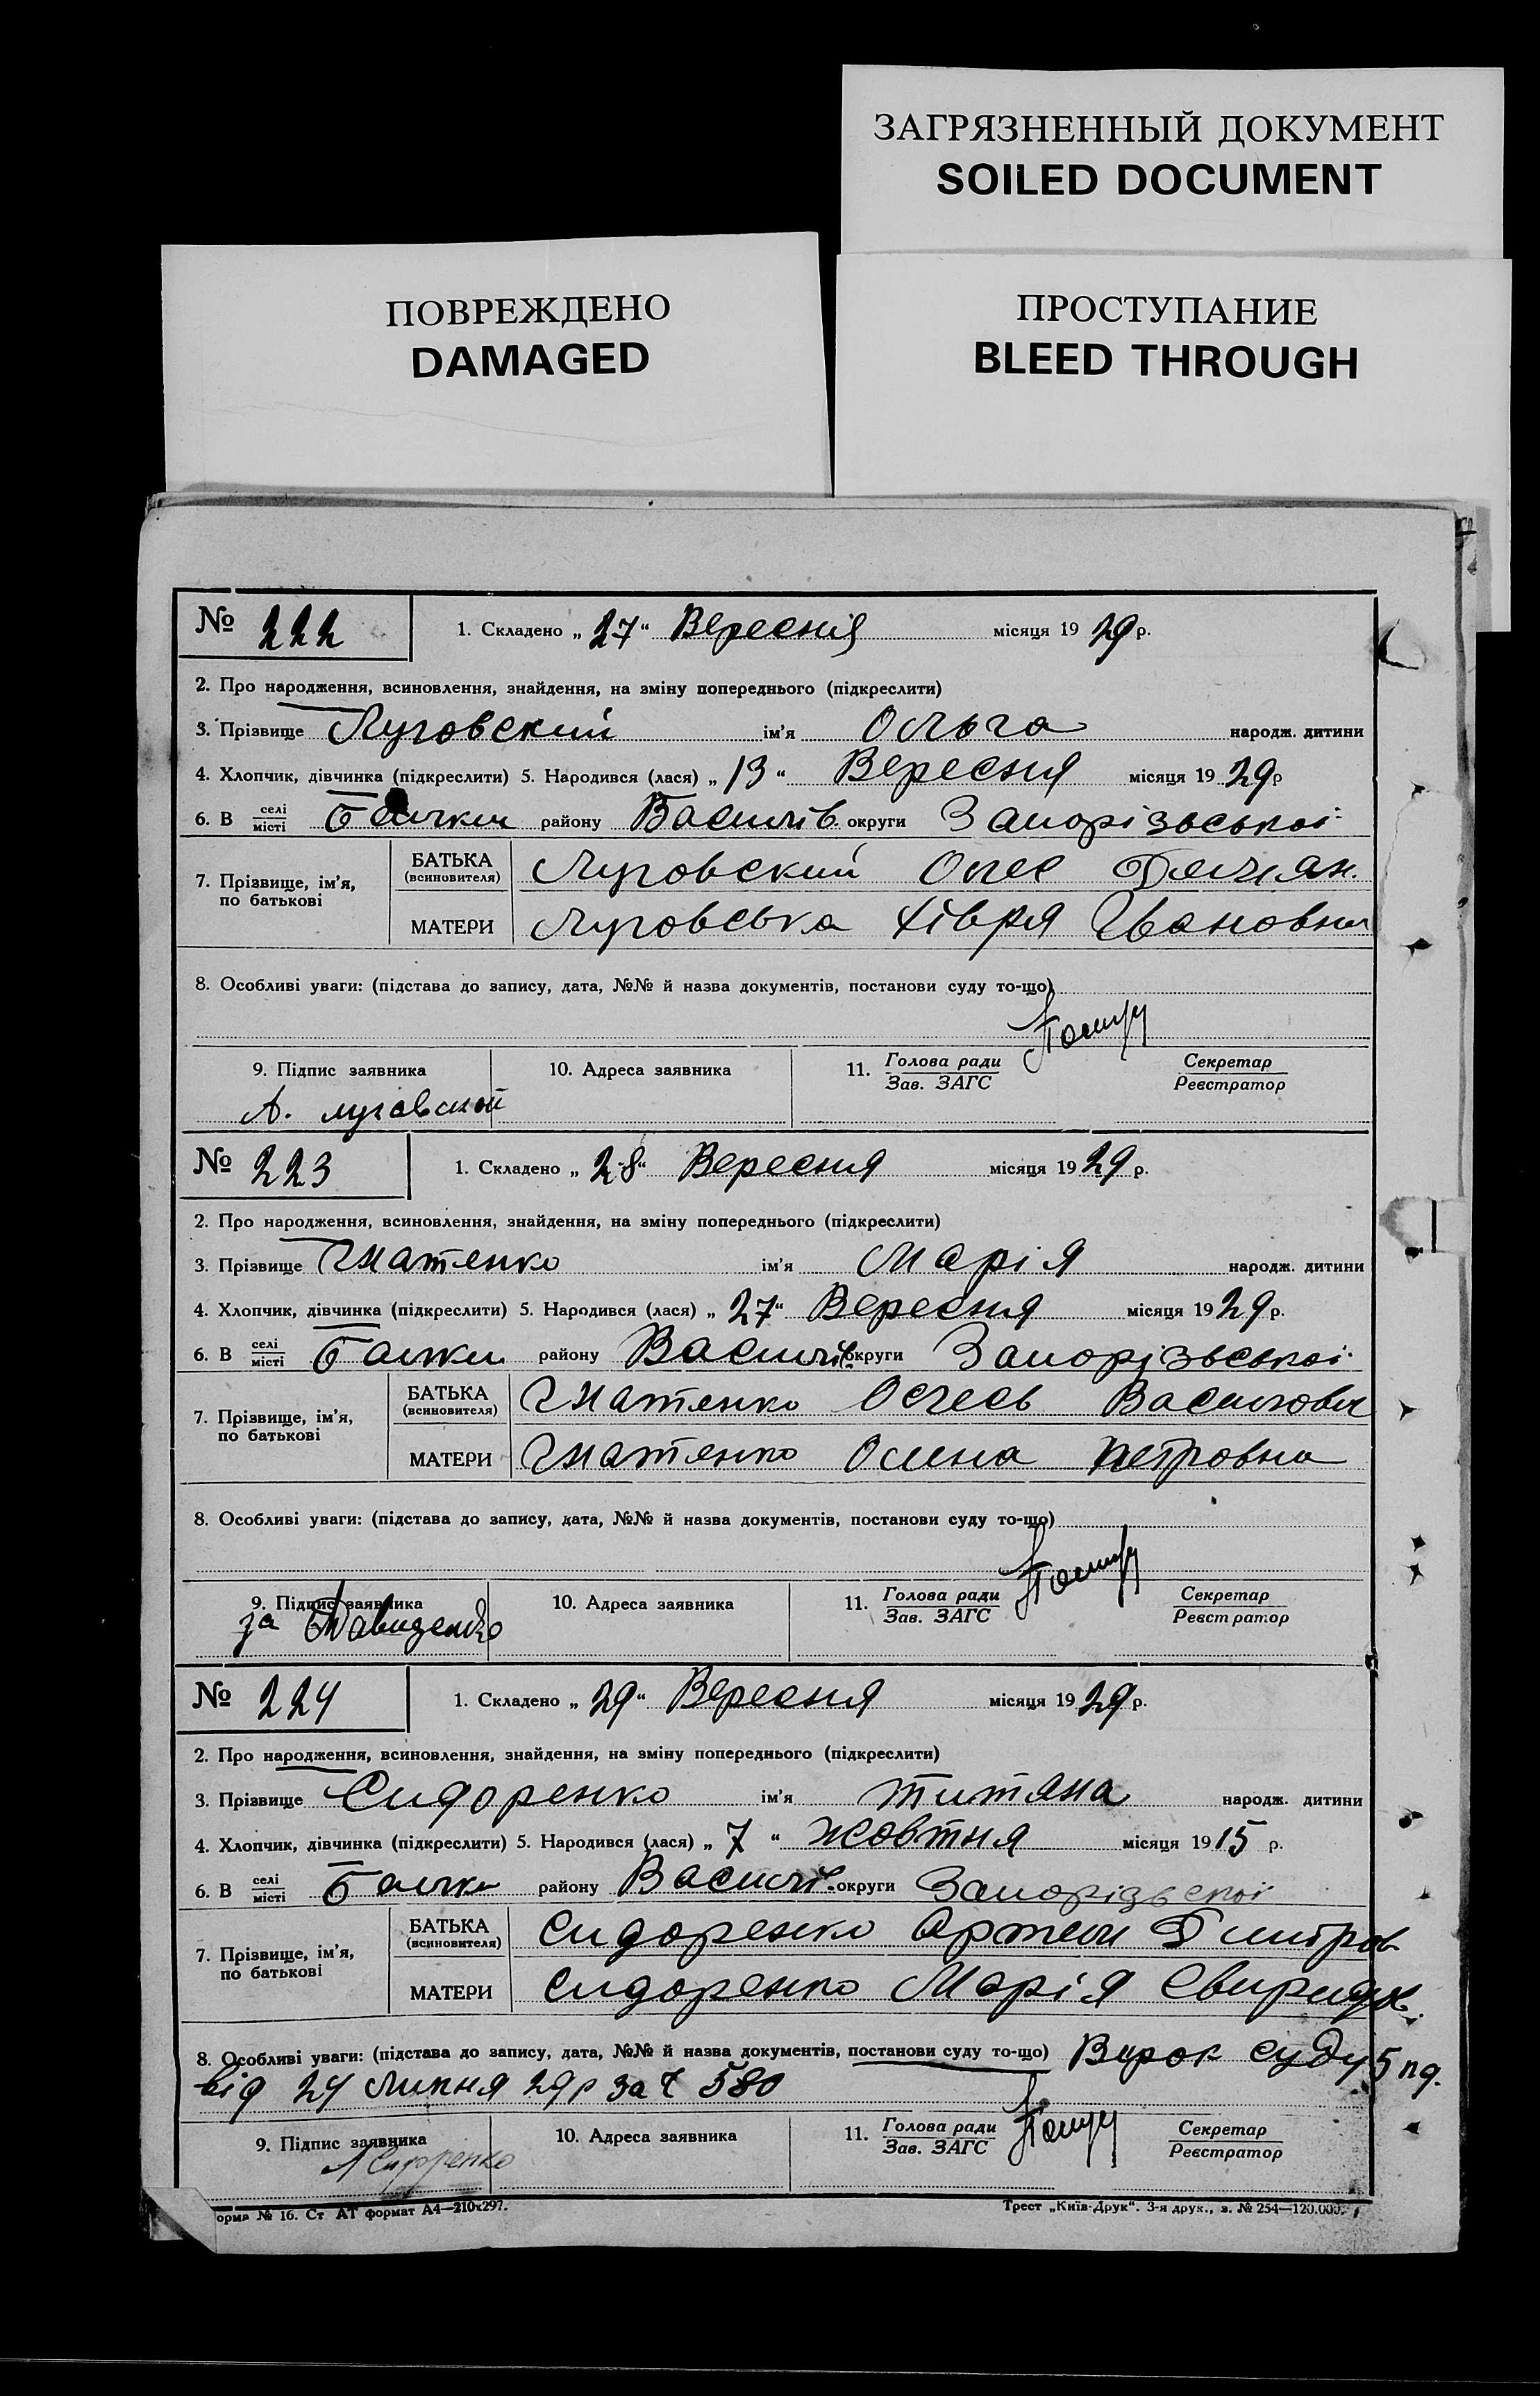 ЗАГРЯЗНЕННЫЙ ДОКУМЕНТ
SOILED DOCUMENT
ПОВРЕЖДЕНО
DAMAGED
ПРОСТУПАНИЕ
BLEED THROUGH
№ 222 1. Складено „ 27 “ Вересня місяця 19 29 р.
2. Про народження, всиновлення, знайдення, на зміну попереднього (підкреслити)
3. Прізвище Луговский ім'я Ольга народж. дитини
4. Хлопчик, дівчинка (підкреслити) 5. Народився (лася) „ 13 “ Вересня місяця 19 29 р
6. В селі/місті Балки району Василів. округи Запорізьської
7. Прізвище, ім'я, по батькові
БАТЬКА (всиновителя) Луговский Олес Демян.
МАТЕРИ Луговська Хівря Івановна
8. Особливі уваги: (підстава до запису, дата, №№ й назва документів, постанови суду то-що)
9. Підпис заявника 10. Адреса заявника 11. Голова ради/Зав. ЗАГС Секретар/Реєстратор
А. Луговской
№ 223 1. Складено „ 28 “ Вересня місяця 19 29 р.
2. Про народження, всиновлення, знайдення, на зміну попереднього (підкреслити)
3. Прізвище Гнатенко ім'я Марія народж. дитини
4. Хлопчик, дівчинка (підкреслити) 5. Народився (лася) „ 27 “ Вересня місяця 19 29 р.
6. В селі/місті Балки району Василів. округи Запорізьської
7. Прізвище, ім'я, по батькові
БАТЬКА (всиновителя) Гнатенко Олесь Василович
МАТЕРИ Гнатенко Олена Петровна
8. Особливі уваги: (підстава до запису, дата, №№ й назва документів, постанови суду то-що)
9. Підпис заявника 10. Адреса заявника 11. Голова ради/Зав. ЗАГС Секретар/Реєстратор
за Давиденко
№ 224 1. Складено „ 29 “ Вересня місяця 19 29 р.
2. Про народження, всиновлення, знайдення, на зміну попереднього (підкреслити)
3. Прізвище Сидоренко ім'я Титяна народж. дитини
4. Хлопчик, дівчинка (підкреслити) 5. Народився (лася) „ 7 “ жовтня місяця 19 15 р.
6. В селі/місті Балки району Василів. округи Запорізьскої
7. Прізвище, ім'я, по батькові
БАТЬКА (всиновителя) Сидоренко Артем Дмитров
МАТЕРИ Сидоренко Марія Свиридов.
8. Особливі уваги: (підстава до запису, дата, №№ й назва документів, постанови суду то-що) Вирок суду 5 пд.
від 24 липня 29 р за Ч 580
9. Підпис заявника 10. Адреса заявника 11. Голова ради/Зав. ЗАГС Секретар/Реєстратор
А Сидоренко
орма № 16. Ст АТ формат А4—210х297. Трест „Київ-Друк“. 3-я друк., з. № 254—120.000.